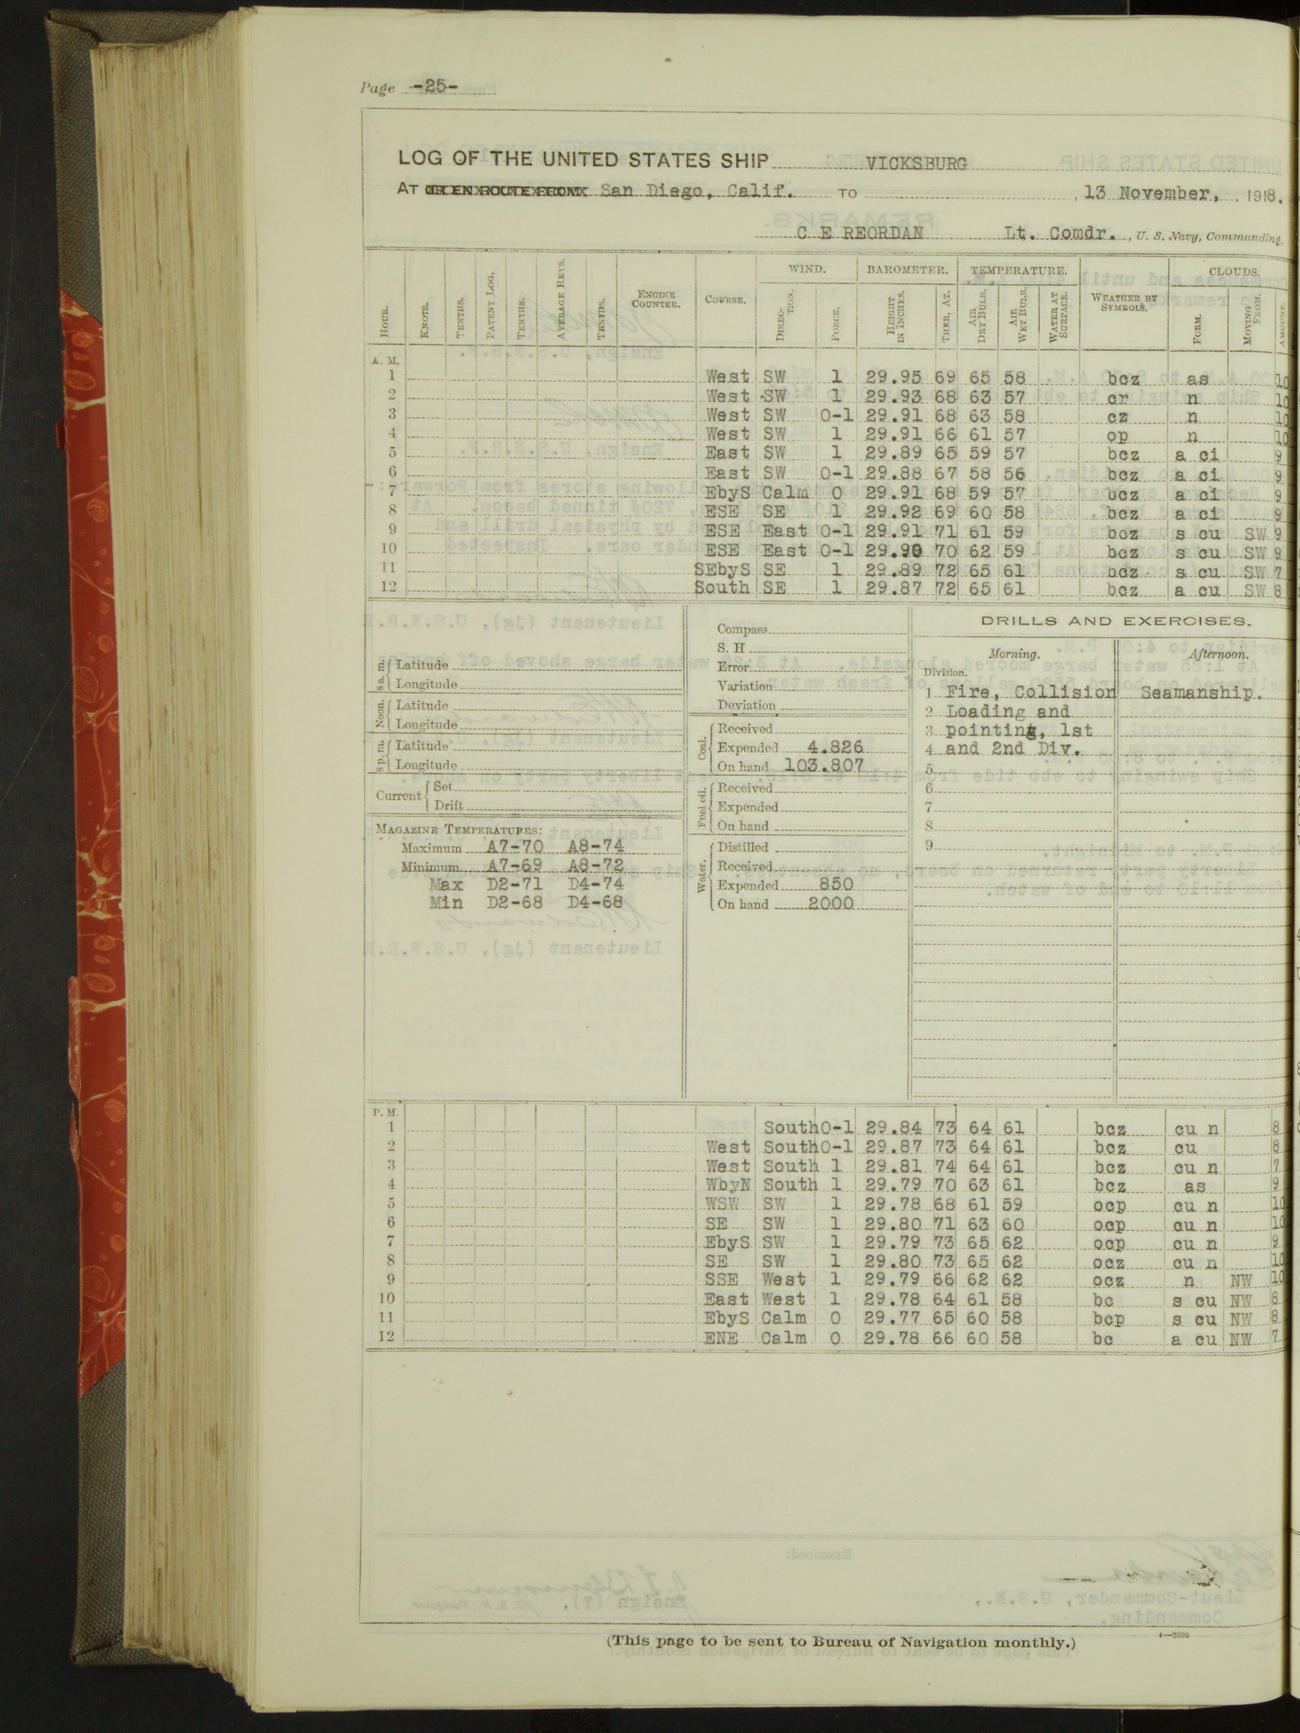 Page -25-
LOG OF THE UNITED STATES SHIP VICKSBURG
AT OR EN ROUTE FROM San Diego, Calif. TO , 13 November, , 1918.
C E REORDAN Lt. Comdr. , U. S. Navy, Commanding.
WIND. BAROMETER. TEMPERATURE. CLOUDS.
HOUR. KNOTS. TENTHS. PATENT LOG. TENTHS. AVERAGE REVS. TENTHS. ENGINE COUNTER. COURSE. DIRECTION. FORCE. HEIGHT IN INCHES. THER. AT. AIR DRY BULB. AIR WET BULB. WATER AT SURFACE. WEATHER BY SYMBOLS. FORM. MOVING FROM. AMOUNT.
A. M.
1 West SW 1 29.95 69 65 58 bcz as 10
2 West SW 1 29.93 68 63 57 cr n 10
3 West SW 0-1 29.91 68 63 58 cz n 10
4 West SW 1 29.91 66 61 57 op n 10
5 East SW 1 29.89 65 59 57 bcz a ci 9
6 East SW 0-1 29.88 67 58 56 bcz a ci 9
7 EbyS Calm 0 29.91 68 59 57 bcz a ci 9
8 ESE SE 1 29.92 69 60 58 bcz a ci 9
9 ESE East 0-1 29.91 71 61 59 bcz s cu SW 9
10 ESE East 0-1 29.90 70 62 59 bcz s cu SW 9
11 SEbyS SE 1 29.89 72 65 61 bcz s cu SW 7
12 South SE 1 29.87 72 65 61 bcz a cu SW 8
8 a.m. Latitude
Longitude
Noon. Latitude
Longitude
8 p.m. Latitude
Longitude
Current Set
Drift
MAGAZINE TEMPERATURES:
Maximum A7-70 A8-74
Minimum A7-69 A8-72
Max D2-71 D4-74
Min D2-68 D4-68
Compass
S. H
Error
Variation
Deviation
Coal. Received
Expended 4.826
On hand 103.807
Fuel oil. Received
Expended
On hand
Water. Distilled
Received
Expended 850
On hand 2000
DRILLS AND EXERCISES.
Morning. Afternoon.
Division.
1 Fire, Collision Seamanship.
2 Loading and
3 pointing, 1st
4 and 2nd Div.
5
6
7
8
9
P. M.
1 South 0-1 29.84 73 64 61 bcz cu n 8
2 West South 0-1 29.87 73 64 61 bcz cu 8
3 West South 1 29.81 74 64 61 bcz cu n 7
4 WbyN South 1 29.79 70 63 61 bcz as 9
5 WSW SW 1 29.78 68 61 59 ocp cu n 10
6 SE SW 1 29.80 71 63 60 ocp cu n 10
7 EbyS SW 1 29.79 73 65 62 ocp cu n 9
8 SE SW 1 29.80 73 65 62 ocz cu n 10
9 SSE West 1 29.79 66 62 62 ocz n NW 10
10 East West 1 29.78 64 61 58 bc s cu NW 8
11 EbyS Calm 0 29.77 65 60 58 bcp s cu NW 8
12 ENE Calm 0 29.78 66 60 58 bc a cu NW 7
(This page to be sent to Bureau of Navigation monthly.)